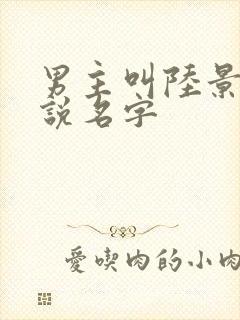 男主叫陸景
說名字
愛喫肉的小肉